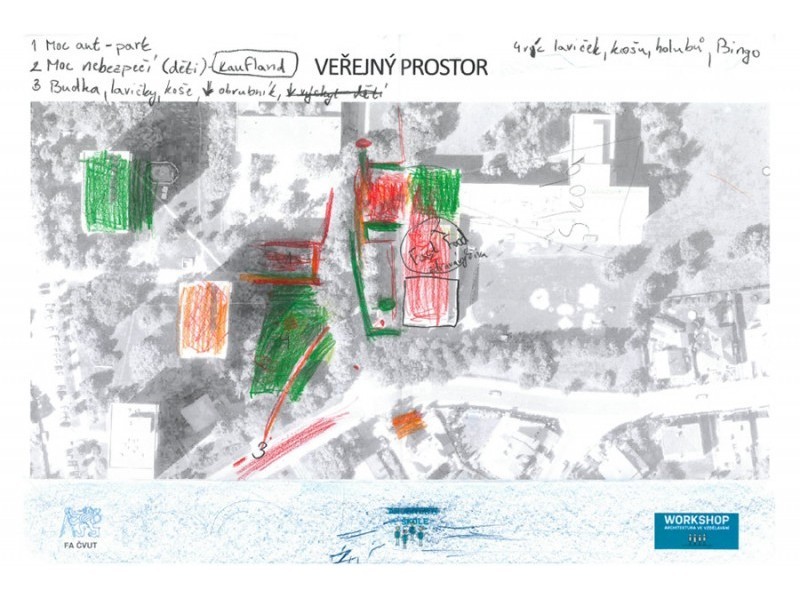 1 Moc aut - park
2 Moc nebezpečí (děti) - Kaufland
3 Budka, lavičky, koše, ↓ obrubník, ↓ výskyt dětí
VEŘEJNÝ PROSTOR
4 víc laviček, košů, holubů, Bingo
Škola
Fast Food
3
FA ČVUT
ŠKOLE
WORKSHOP
ARCHITEKTURA VE VZDĚLÁVÁNÍ